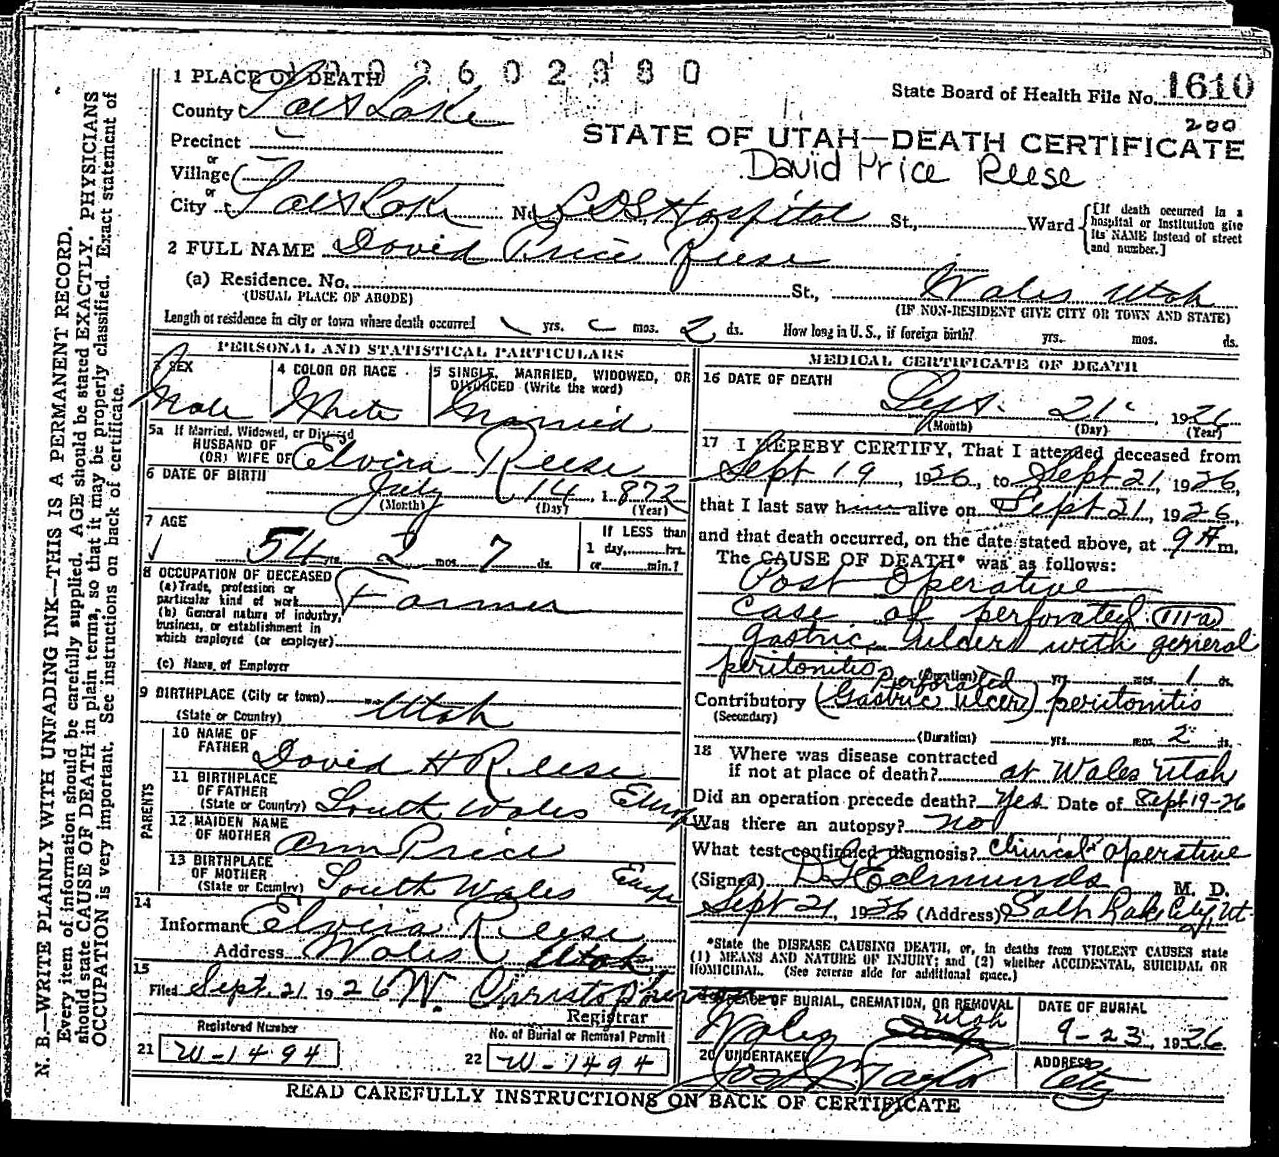 1 PLACE OF DEATH 2602980
State Board of Health File No. 1610
County Salt Lake
200
STATE OF UTAH—DEATH CERTIFICATE
David Price Reese
Precinct
or
Village
or
City Salt Lake No. L D S Hospital St., Ward [If death occurred in a hospital or institution give its NAME instead of street and number.]
2 FULL NAME David Price Reese
(a) Residence. No. St., Wales Utah
(USUAL PLACE OF ABODE) (IF NON-RESIDENT GIVE CITY OR TOWN AND STATE)
Length of residence in city or town where death occurred yrs. mos. 2 ds. How long in U. S., if foreign birth? yrs. mos. ds.
PERSONAL AND STATISTICAL PARTICULARS
3 SEX
Male
4 COLOR OR RACE
White
5 SINGLE, MARRIED, WIDOWED, OR DIVORCED (Write the word)
Married
5a If Married, Widowed, or Divorced
HUSBAND OF
(OR) WIFE OF Elvira Reese
6 DATE OF BIRTH
July 14, 1872
(Month) (Day) (Year)
7 AGE
54 yrs. 2 mos. 7 ds.
If LESS than
1 day, hrs.
or min.?
8 OCCUPATION OF DECEASED
(a) Trade, profession or
particular kind of work Farmer
(b) General nature of industry,
business, or establishment in
which employed (or employer)
(c) Name of Employer
9 BIRTHPLACE (City or town)
(State or Country) Utah
PARENTS
10 NAME OF
FATHER David H Reese
11 BIRTHPLACE
OF FATHER
(State or Country) South Wales
12 MAIDEN NAME
OF MOTHER Ann Price
13 BIRTHPLACE
OF MOTHER
(State or Country) South Wales
14
Informant Elvira Reese
Address Wales Utah
15
Filed Sept. 21 1926 W. Christopherson
Registrar
Registered Number
21 W-1494
No. of Burial or Removal Permit
22 W-1494
MEDICAL CERTIFICATE OF DEATH
16 DATE OF DEATH
Sept. 21, 1926
(Month) (Day) (Year)
17 I HEREBY CERTIFY, That I attended deceased from
Sept 19, 1926, to Sept 21, 1926,
that I last saw h alive on Sept 21, 1926,
and that death occurred, on the date stated above, at 9 A m.
The CAUSE OF DEATH* was as follows:
Post Operative
case of perforated 111-a
gastric ulder with general
peritonitis (Duration) yrs. mos. 1 ds.
Perforated
Contributory (Gastric Ulcer) peritonitis
(Secondary)
(Duration) yrs. mos. 2 ds.
18 Where was disease contracted
if not at place of death? at Wales Utah
Did an operation precede death? Yes Date of Sept 19-26
Was there an autopsy? no
What test confirmed diagnosis? Clinical operative
(Signed) Edmunds M. D.
Sept 21, 1926 (Address) Salt Lake City Ut.
*State the DISEASE CAUSING DEATH, or, in deaths from VIOLENT CAUSES state
(1) MEANS AND NATURE OF INJURY; and (2) whether ACCIDENTAL, SUICIDAL OR
HOMICIDAL. (See reverse side for additional space.)
19 PLACE OF BURIAL, CREMATION, OR REMOVAL
Wales Utah
DATE OF BURIAL
9-23, 1926
20 UNDERTAKER
Taylor
ADDRESS
City
READ CAREFULLY INSTRUCTIONS ON BACK OF CERTIFICATE
N. B.—WRITE PLAINLY WITH UNFADING INK—THIS IS A PERMANENT RECORD.
Every item of information should be carefully supplied. AGE should be stated EXACTLY. PHYSICIANS
should state CAUSE OF DEATH in plain terms, so that it may be properly classified. Exact statement of
OCCUPATION is very important. See instructions on back of certificate.